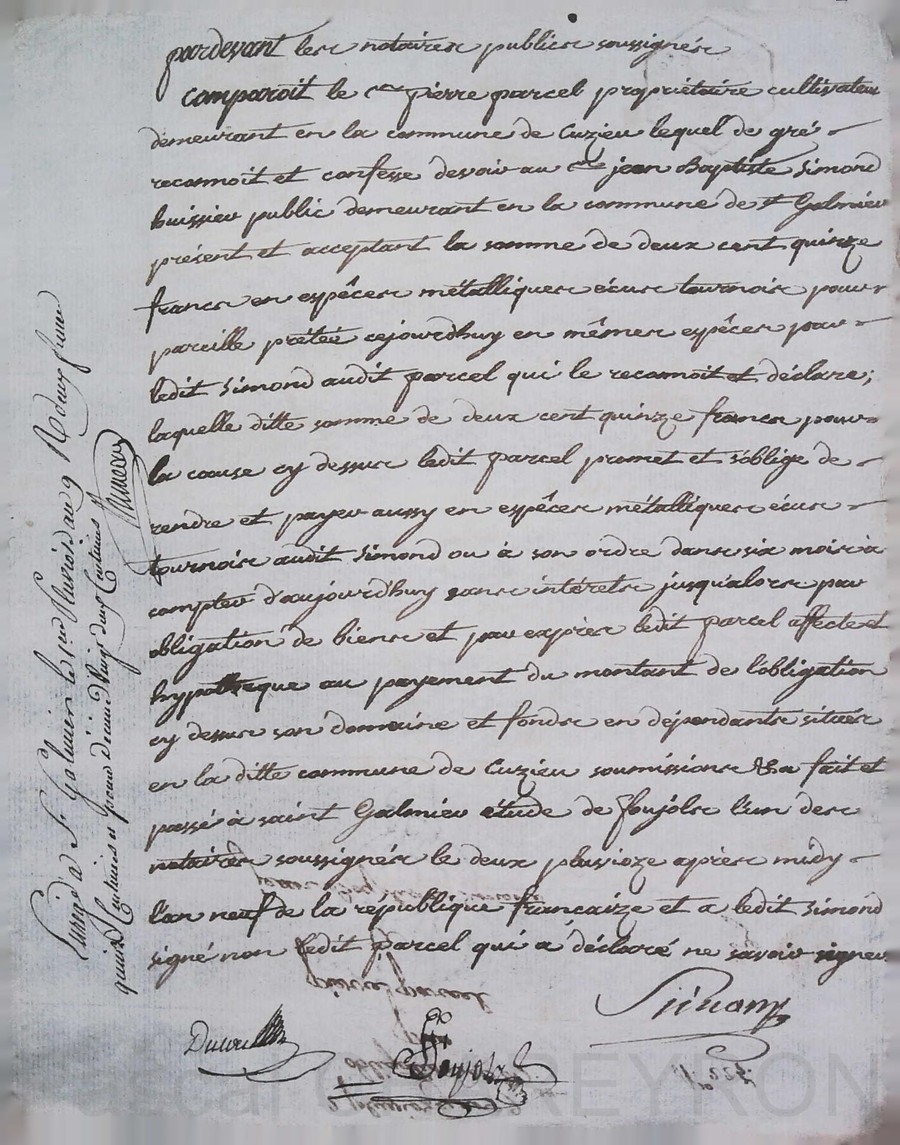 pardevant les notaires publics soussignés
comparoit le c.en pierre parcel propriétaire cultivateur
demeurant en la commune de Cuzieu lequel de gré
reconnoit et confesse devoir au c.en jean Baptiste Simond
huissier public demeurant en la commune de st Galmier
présent et acceptant la somme de deux cent quinze
francs en espêces métalliques écus tournois pour
pareille prétée cejourdhuy en mêmes espêces par
ledit Simond audit parcel qui le reconnoit et déclare;
laquelle ditte somme de deux cent quinze francs pour
la cause cy dessus ledit parcel promet et s'oblige de
rendre et payer aussy en espêces métalliques écus
tournois audit Simond ou à son ordre dans six mois à
compter d'aujourdhuy sans intérets jusqualors par
obligation de biens et par exprès ledit parcel affecte et
hypothèque au payement du montant de l'obligation
cy dessus son domaine et fonds en dépendants situés
en la ditte commune de Cuzieu soumissions &a fait et
passé à saint Galmier étude de foujols l'un des
notaires soussignés le deux pluvioze après midy
l'an neuf de la république francaize et a ledit Simond
signé non ledit parcel qui a déclaré ne savoir signer
Simond
Foujols
à St Galmier le pluviose an 9 Reçu deux francs
quinze Centimes et pour decime Vingt deux Centimes